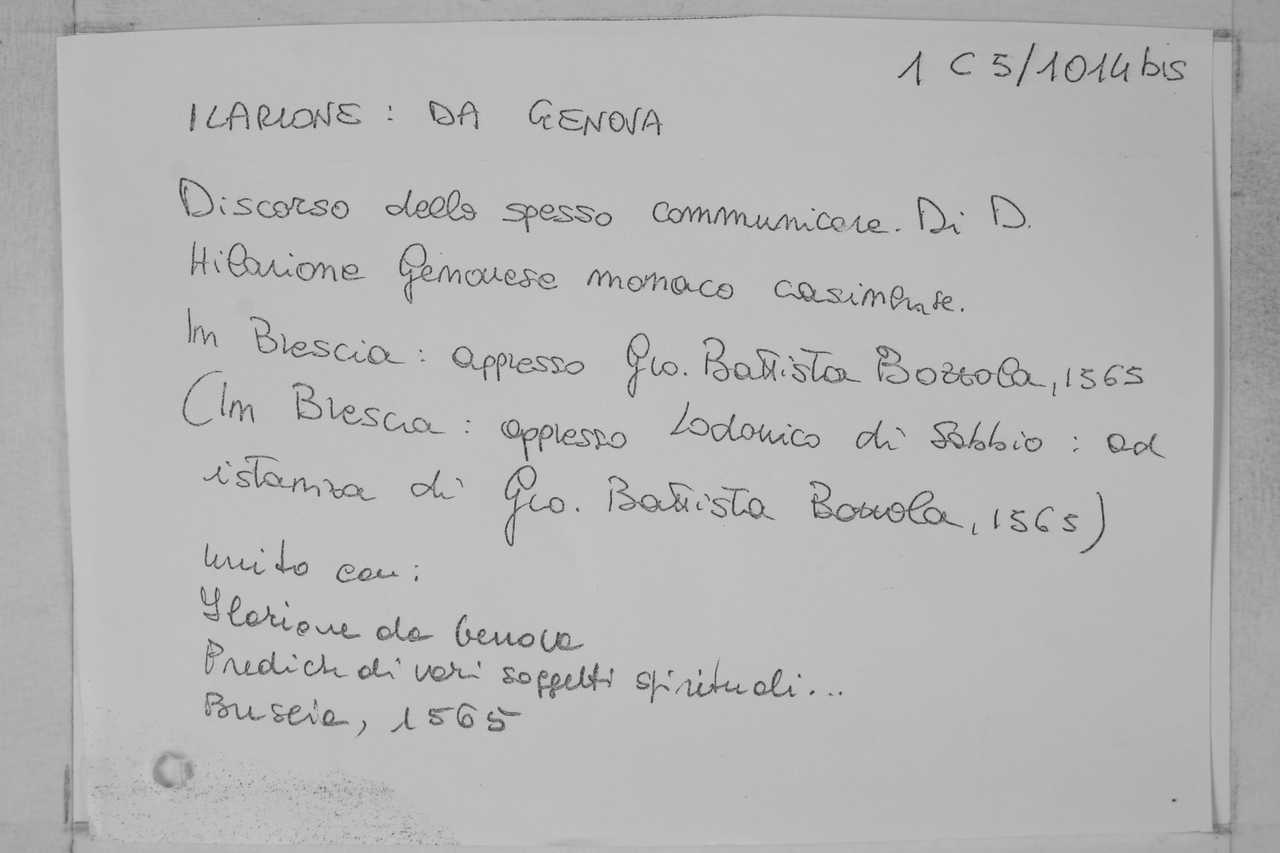 1 C 5/1014 bis
ILARIONE : DA GENOVA
Discorso dello spesso communicare. Di D.
Hilarione Genovese monaco casinense.
In Brescia : appresso Gio. Battista Bozzola, 1565
(In Brescia : appresso Lodovico di Sabbio : ad
istanza di Gio. Battista Bozzola, 1565)
unito con :
Ilarione da Genova
Prediche di vari soggetti spirituali...
Brescia, 1565